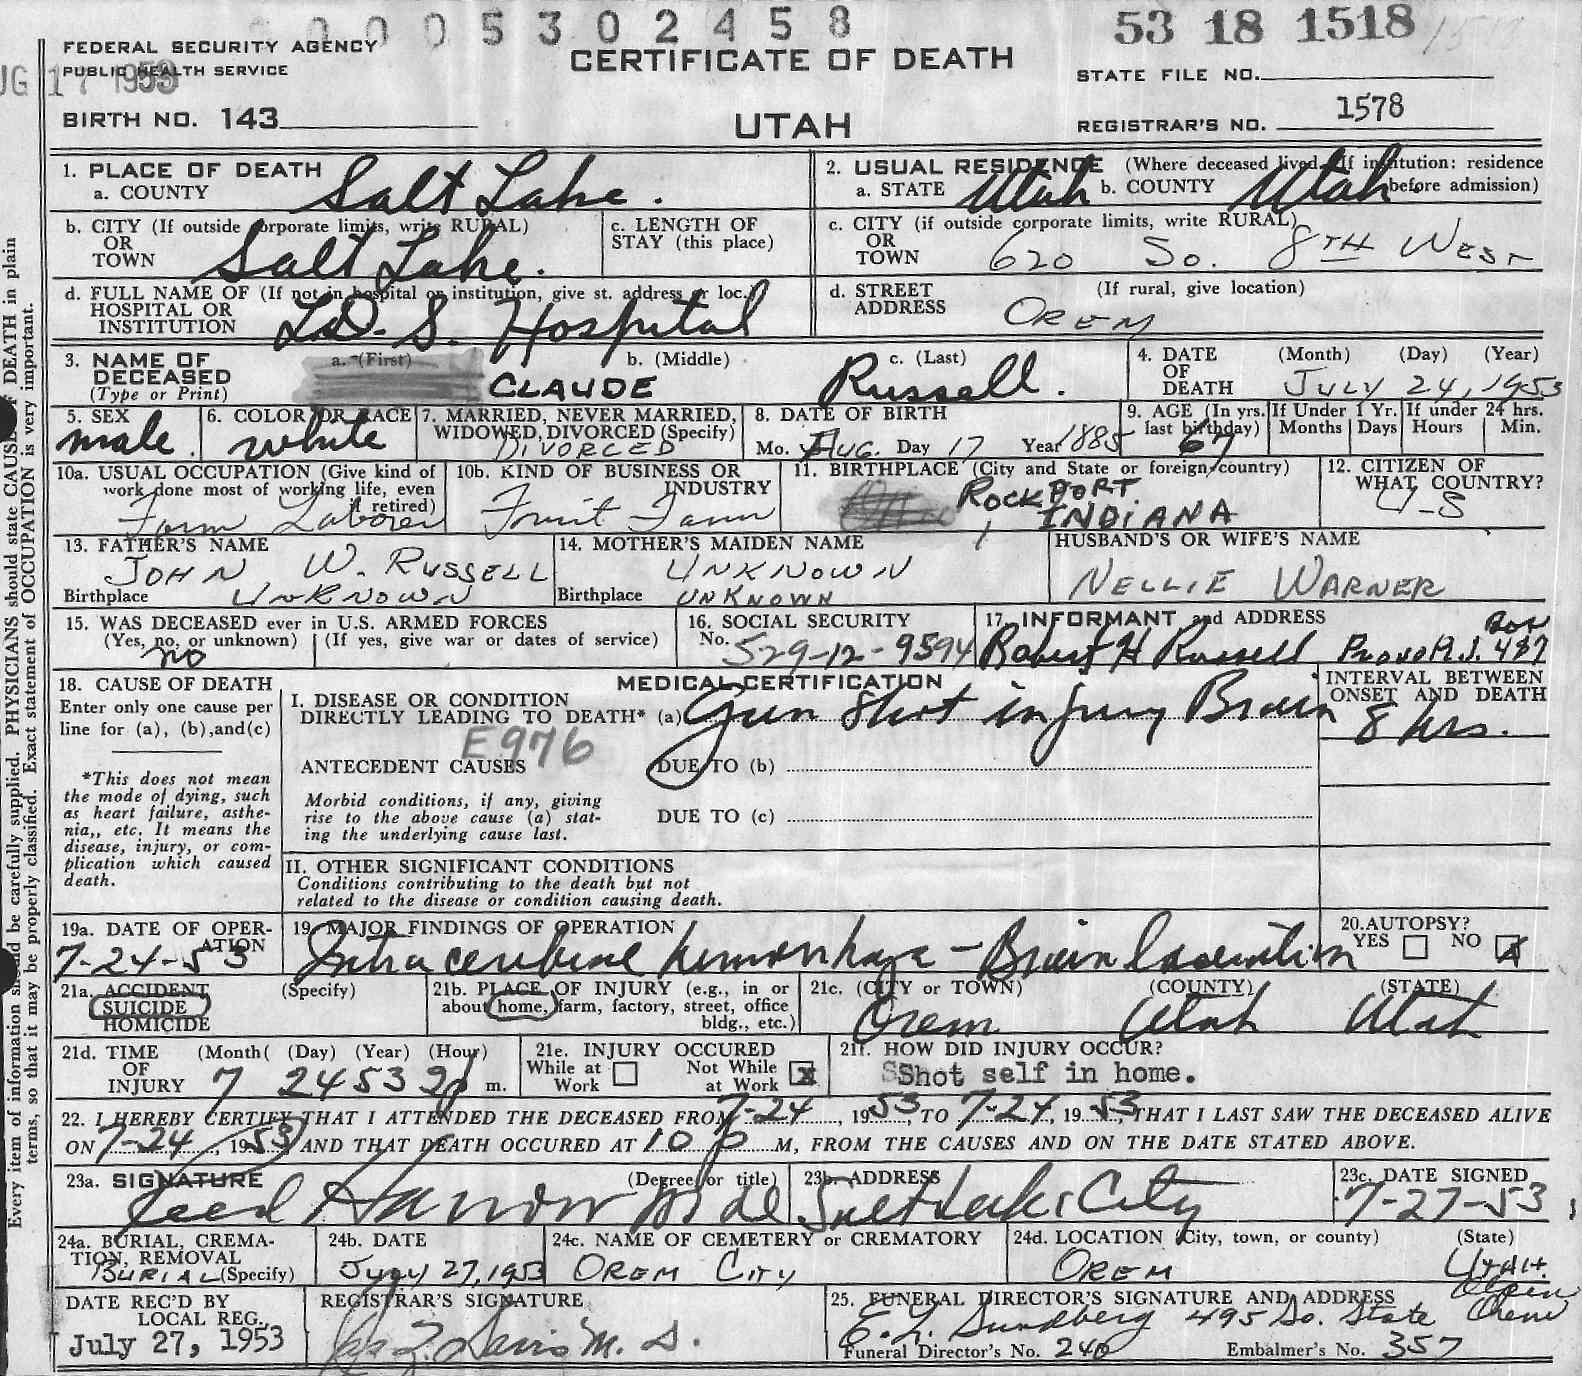 0005302458
53 18 1518
FEDERAL SECURITY AGENCY
PUBLIC HEALTH SERVICE
UG 17 1953
CERTIFICATE OF DEATH
STATE FILE NO.
BIRTH NO. 143
UTAH
REGISTRAR'S NO. 1578
1. PLACE OF DEATH
a. COUNTY Salt Lake.
2. USUAL RESIDENCE (Where deceased lived. If institution: residence before admission)
a. STATE Utah b. COUNTY Utah
b. CITY (If outside corporate limits, write RURAL) OR TOWN Salt Lake.
c. LENGTH OF STAY (this place)
c. CITY (if outside corporate limits, write RURAL) OR TOWN 620 So. 8TH WEST
d. FULL NAME OF (If not in hospital or institution, give st. address or loc.) HOSPITAL OR INSTITUTION L.D.S. Hospital
d. STREET ADDRESS (If rural, give location) OREM
3. NAME OF DECEASED (Type or Print)
a. (First) b. (Middle) c. (Last)
CLAUDE Russell.
4. DATE OF DEATH (Month) (Day) (Year)
JULY 24, 1953
5. SEX male.
6. COLOR OR RACE white
7. MARRIED, NEVER MARRIED, WIDOWED, DIVORCED (Specify) DIVORCED
8. DATE OF BIRTH
Mo. Aug. Day 17 Year 1885
9. AGE (In yrs. last birthday) 67
If Under 1 Yr. Months Days
If under 24 hrs. Hours Min.
10a. USUAL OCCUPATION (Give kind of work done most of working life, even if retired) Farm Laborer
10b. KIND OF BUSINESS OR INDUSTRY Fruit Farm
11. BIRTHPLACE (City and State or foreign country) ROCKPORT, INDIANA
12. CITIZEN OF WHAT COUNTRY? U-S
13. FATHER'S NAME
JOHN W. RUSSELL
Birthplace UNKNOWN
14. MOTHER'S MAIDEN NAME
UNKNOWN
Birthplace UNKNOWN
HUSBAND'S OR WIFE'S NAME
NELLIE WARNER
15. WAS DECEASED ever in U.S. ARMED FORCES
(Yes, no, or unknown) (If yes, give war or dates of service)
no
16. SOCIAL SECURITY
No. 529-12-9594
17. INFORMANT and ADDRESS
Robert H Russell Provo R.1. Box 487
18. CAUSE OF DEATH
Enter only one cause per line for (a), (b), and (c)
*This does not mean the mode of dying, such as heart failure, asthenia,, etc. It means the disease, injury, or complication which caused death.
MEDICAL CERTIFICATION
I. DISEASE OR CONDITION DIRECTLY LEADING TO DEATH* (a) Gun Shot injury Brain
INTERVAL BETWEEN ONSET AND DEATH
8 hrs.
E976
ANTECEDENT CAUSES
DUE TO (b)
Morbid conditions, if any, giving rise to the above cause (a) stating the underlying cause last.
DUE TO (c)
II. OTHER SIGNIFICANT CONDITIONS
Conditions contributing to the death but not related to the disease or condition causing death.
19a. DATE OF OPERATION
7-24-53
19. MAJOR FINDINGS OF OPERATION
Intracerebral hemorrhage - Brain laceration
20. AUTOPSY?
YES NO X
21a. ACCIDENT SUICIDE HOMICIDE (Specify)
21b. PLACE OF INJURY (e.g., in or about home, farm, factory, street, office bldg., etc.)
21c. (CITY or TOWN) (COUNTY) (STATE)
Orem Utah Utah
21d. TIME OF INJURY (Month( (Day) (Year) (Hour)
7 24 53 2p m.
21e. INJURY OCCURED
While at Work Not While at Work X
21f. HOW DID INJURY OCCUR?
Shot self in home.
22. I HEREBY CERTIFY THAT I ATTENDED THE DECEASED FROM 7-24, 1953, TO 7-24, 1953, THAT I LAST SAW THE DECEASED ALIVE
ON 7-24, 1953 AND THAT DEATH OCCURED AT 10 p M, FROM THE CAUSES AND ON THE DATE STATED ABOVE.
23a. SIGNATURE (Degree or title)
23b. ADDRESS
Salt Lake City
23c. DATE SIGNED
7-27-53
24a. BURIAL, CREMATION, REMOVAL (Specify) BURIAL
24b. DATE
July 27, 1953
24c. NAME OF CEMETERY or CREMATORY
OREM CITY
24d. LOCATION (City, town, or county) (State)
OREM UTAH.
DATE REC'D BY LOCAL REG.,
July 27, 1953
REGISTRAR'S SIGNATURE
25. FUNERAL DIRECTOR'S SIGNATURE AND ADDRESS
E. L. Sundberg 495 So. State Orem
Funeral Director's No. 240 Embalmer's No. 357
Every item of information should be carefully supplied. PHYSICIANS should state CAUSE OF DEATH in plain
terms, so that it may be properly classified. Exact statement of OCCUPATION is very important.